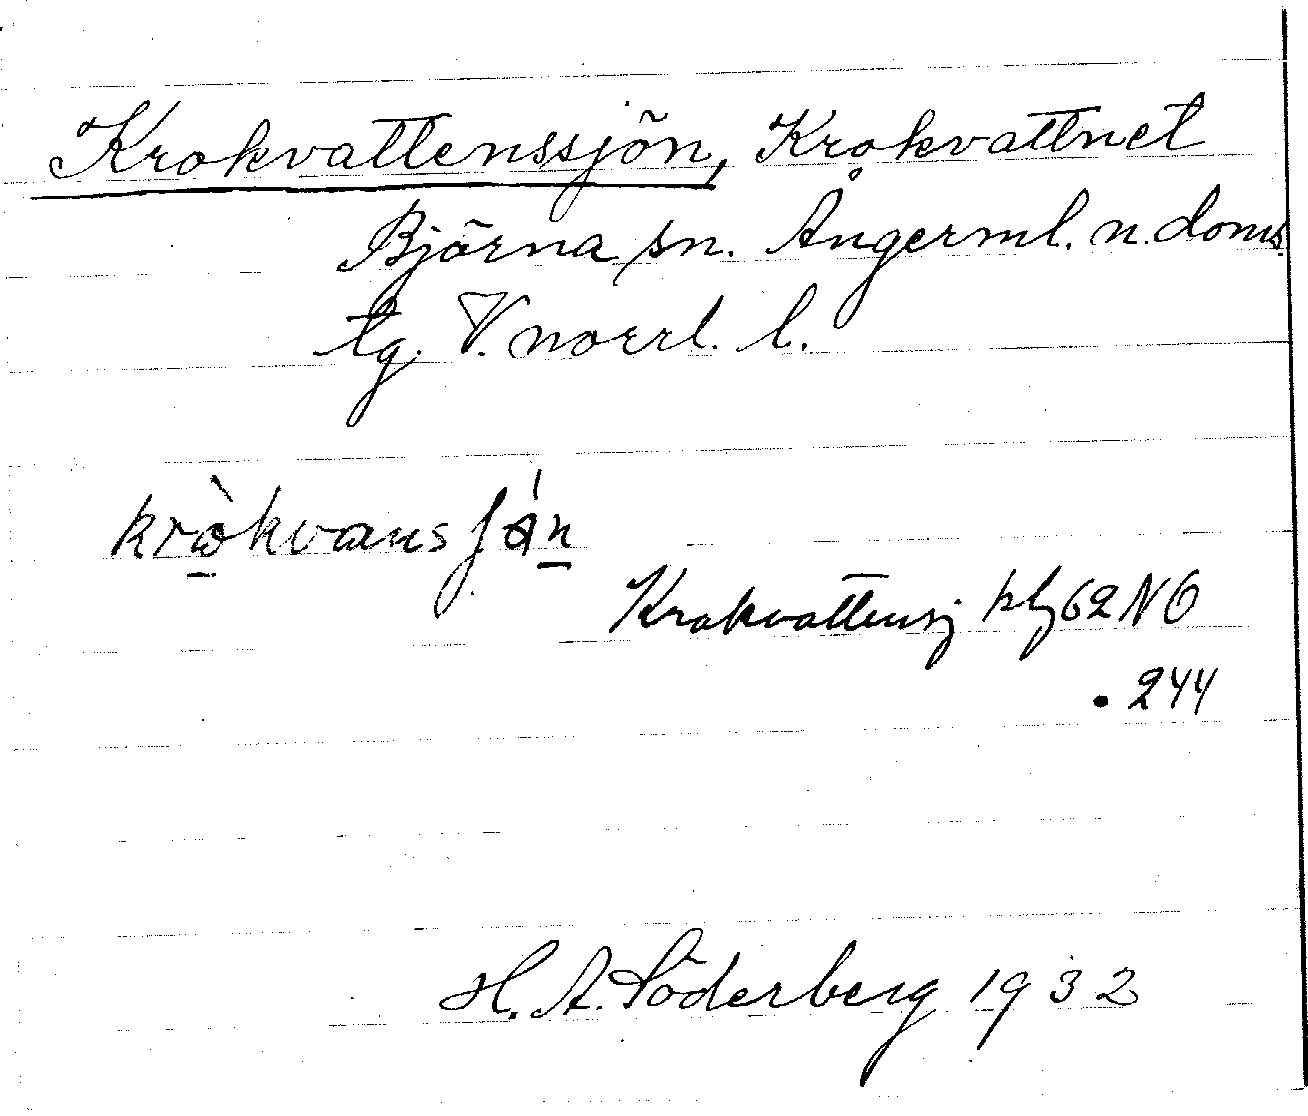 Krokvattenssjön, Krokvattnet
Björna sn. Ångerml. n. doms
tg. V. norrl. l.
kròkvans ʃǿn
Krokvattensj kbl 62 NO
. 244
H. A. Söderberg 1932